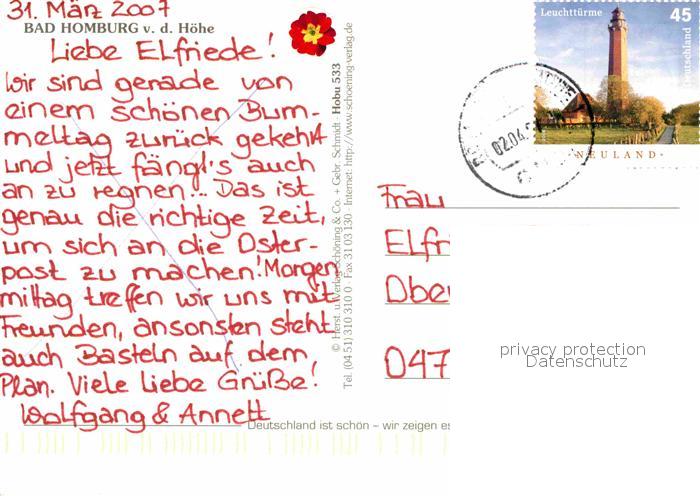 31. März 2007
BAD HOMBURG v. d. Höhe
Liebe Elfriede!
Wir sind gerade von
einem schönen Bum-
meltag zurück gekehrt
und jetzt fängt's auch
an zu regnen... Das ist
genau die richtige Zeit,
um sich an die Oster-
post zu machen! Morgen
mittag treffen wir uns mit
Freunden, ansonsten steht
auch Basteln auf dem
Plan. Viele Liebe Grüße!
Wolfgang & Annett
© Herst. u. Verlag Schöning & Co. + Gebr. Schmidt · Hobu 533
Tel. (04 51) 310 310 0 · Fax 31 03 130 · Internet: http://www.schoening-verlag.de
Leuchttürme 45
Deutschland
NEULAND
02.04.
Frau
Elfr
Obe
047
privacy protection
Datenschutz
Deutschland ist schön – wir zeigen es